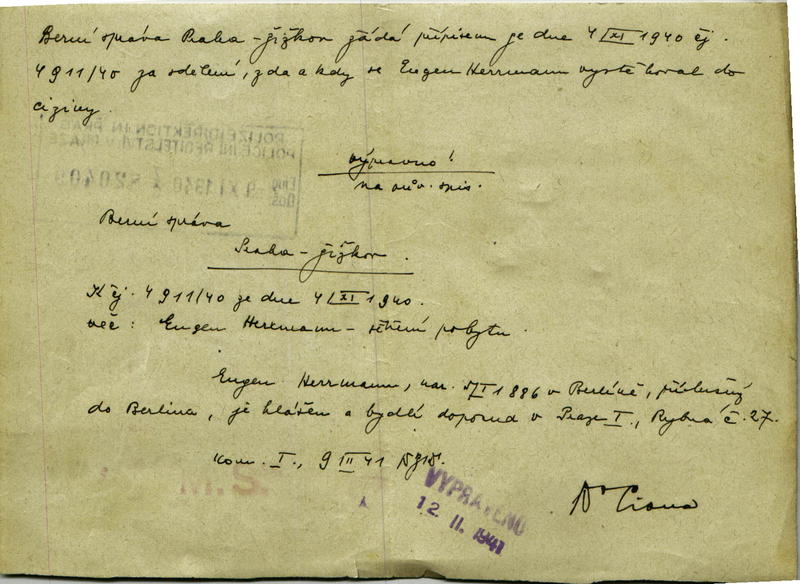 Berní správa Praha-Žižkov žádá přípisem ze dne 4/XI 1940 čj.
4911/40 za sdělení, zda a kdy se Eugen Herrmann vystěhoval do
ciziny.
POLIZEIDIREKTION IN PRAG
POLICEJNÍ ŘEDITELSTVÍ V PRAZE
9 XI 1940
výpravno!
na pův. spis.
Berní správa
Praha-Žižkov.
K čj. 4911/40 ze dne 4/XI 1940.
věc: Eugen Herrmann - šetření pobytu.
Eugen Herrmann, nar. 5/I 1886 v Berlíně, příslušný
do Berlína, je hlášen a bydlí doposud v Praze I., Rybná č. 27.
kom. I., 9/II 41
VYPRAVENO
12. II. 1941
Dr